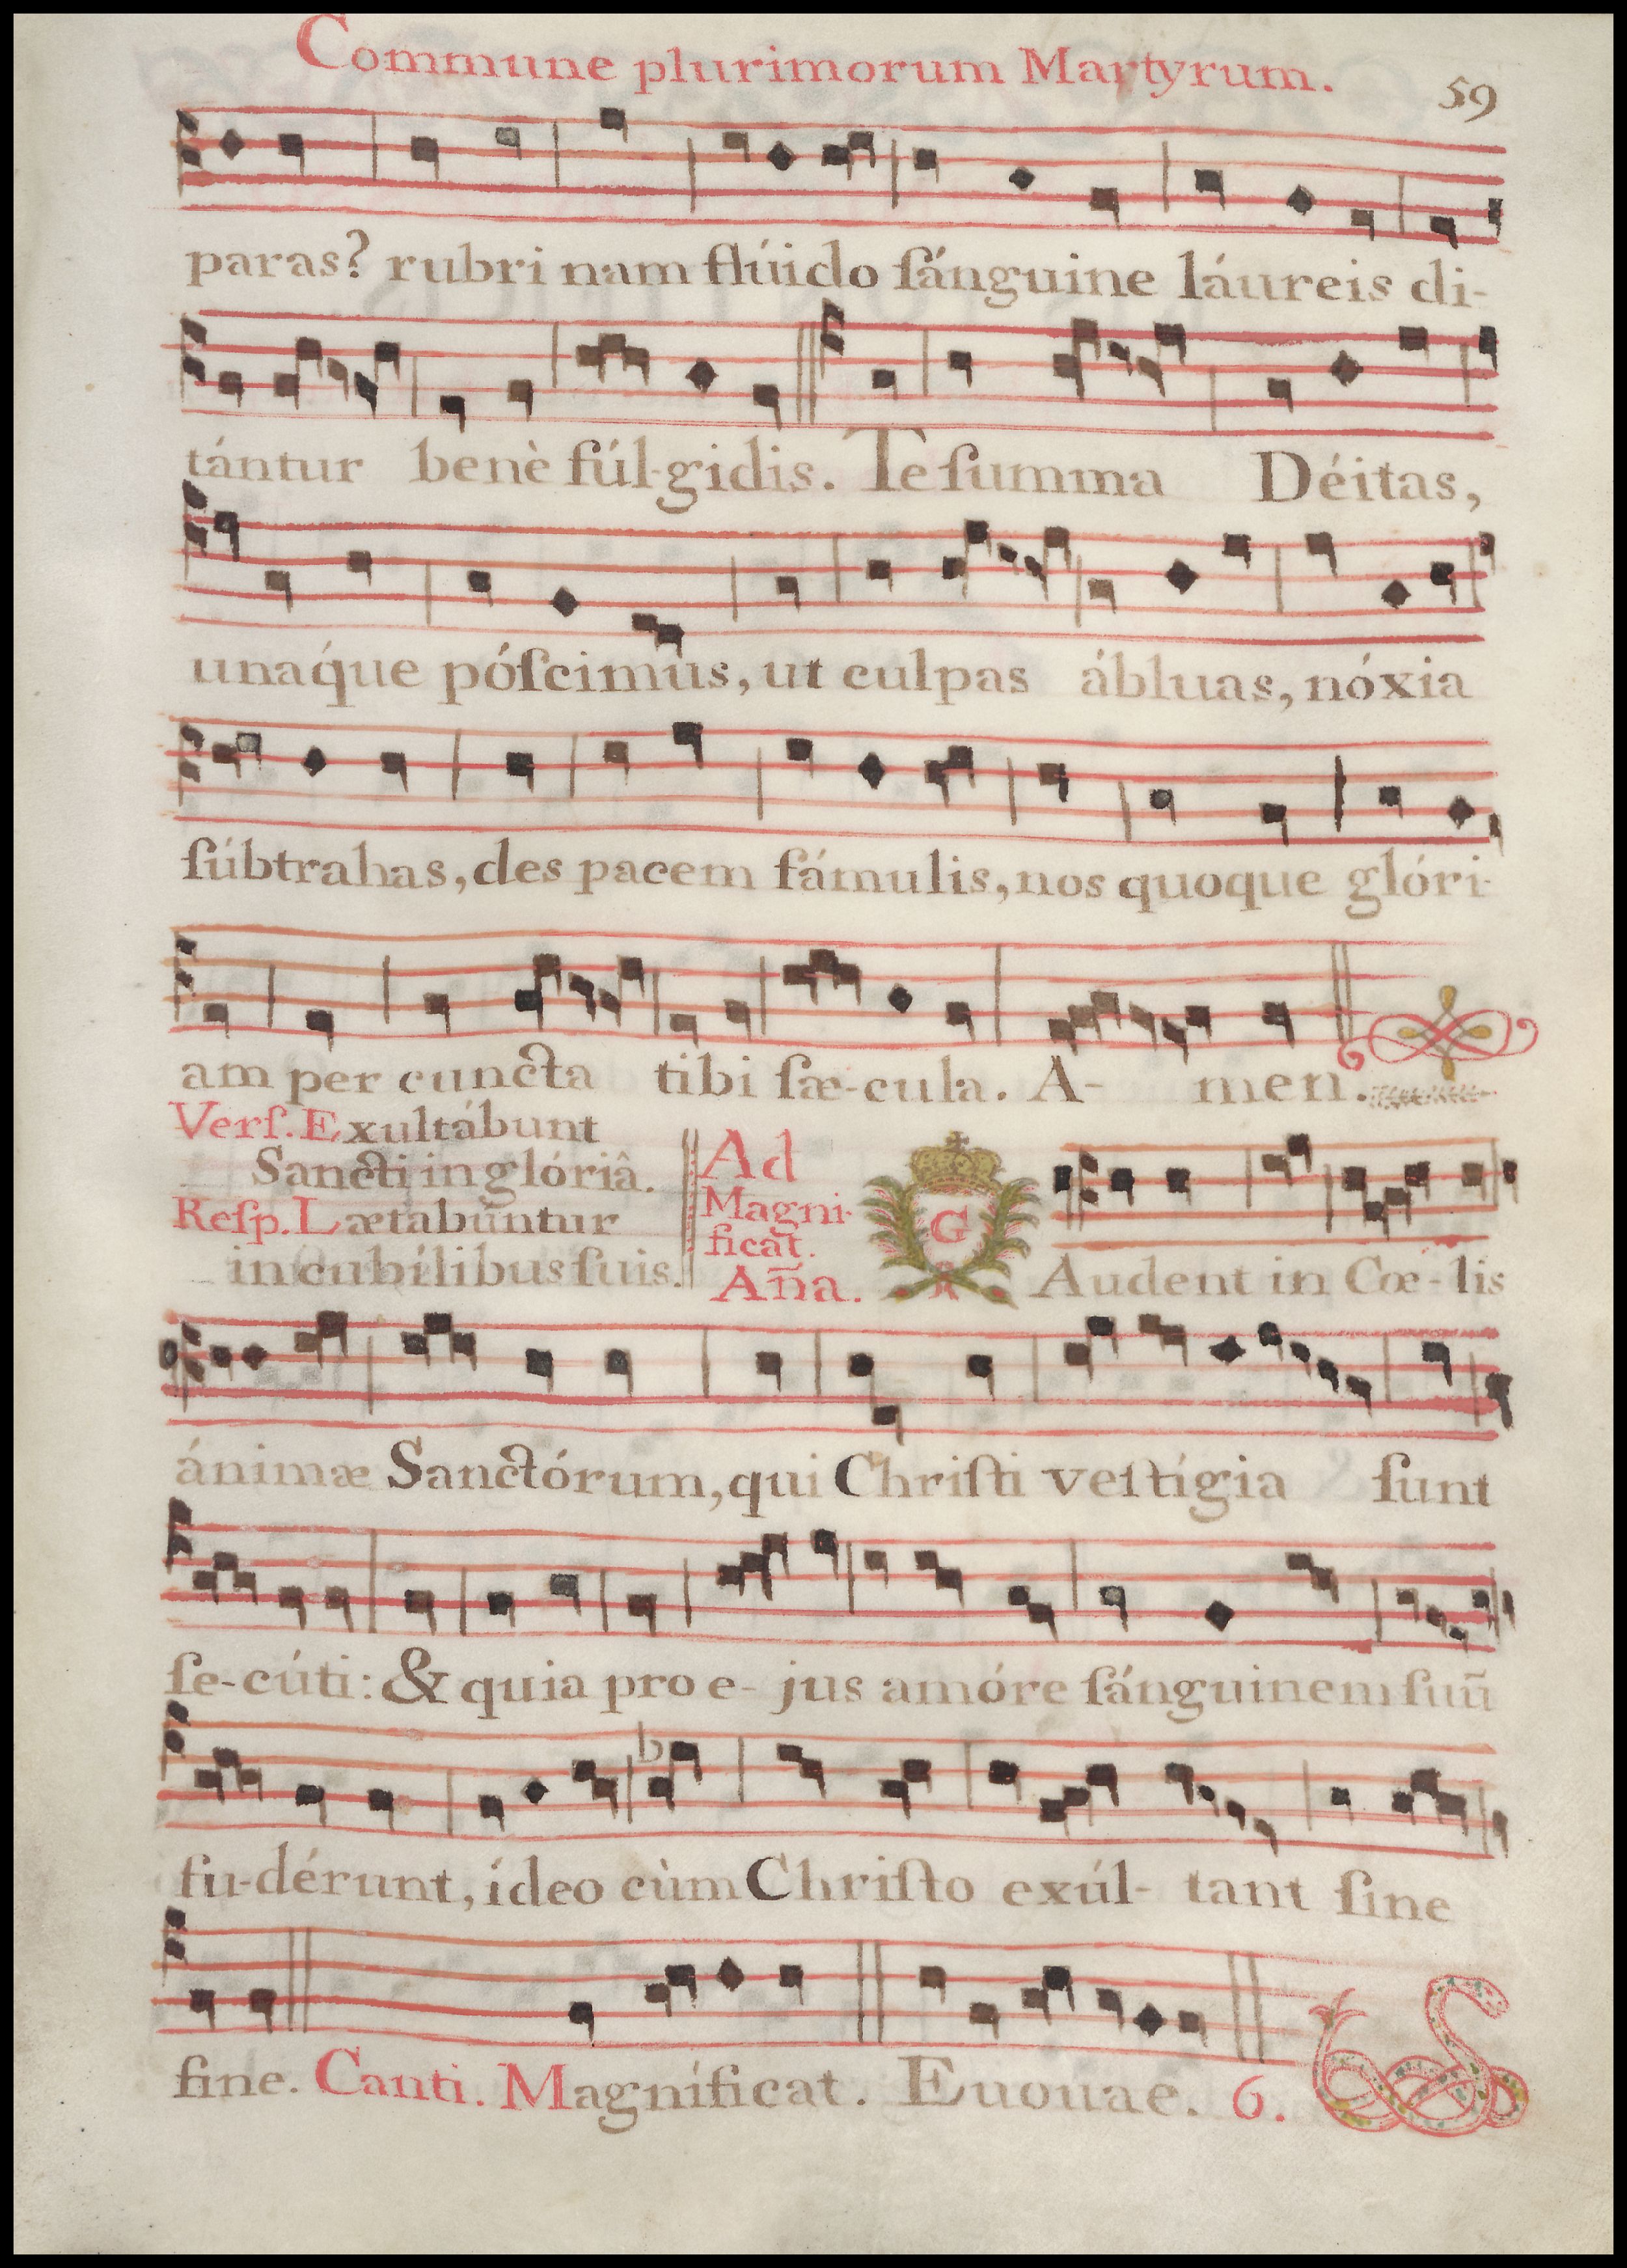 Commune plurimorum Martyrum.
59
paras? rubri nam flúido ſánguine láureis di-
tántur benè fúl-gidis. Te ſumma Déitas,
unaq́ue póſcimus, ut culpas ábluas, nóxia
ſúbtrahas, des pacem fámulis, nos quoque glóri-
am per cuncta tibi ſæ-cula. A- men.
Verſ. Exultábunt
Sancti in glóriâ.
Reſp. Lætabúntur
in cubílibus ſuis.
Ad
Magni-
ficat.
Aña.
G
Audent in Cœ-lis
ánimæ Sanctórum, qui Chriſti veſtígia ſunt
ſe-cúti: & quia pro e- jus amóre ſánguinem ſuũ
fu-dérunt, ídeo cùm Chriſto exúl- tant ſine
fine. Canti. Magníficat. Euouae. 6.